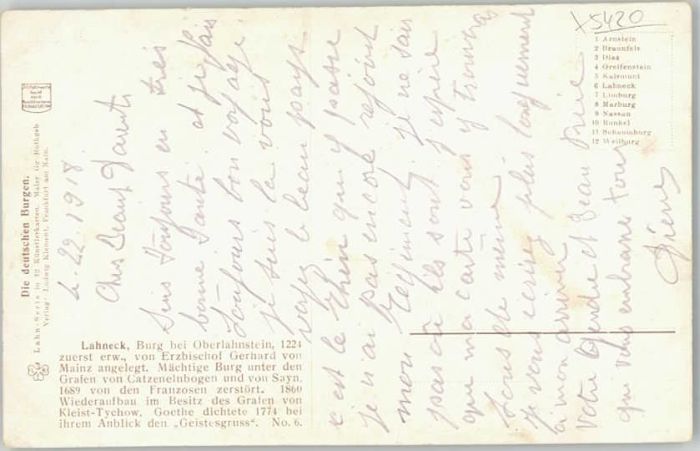 X5420
1 Arnstein
2 Braunfels
3 Diez
4 Greifenstein
5 Kaismunt
6 Lahneck
7 Limburg
8 Marburg
9 Nassau
10 Runkel
11 Schaumburg
12 Weilburg
Die deutschen Burgen.
Lahn-Serie in 12 Künstlerkarten. Maler
Verlag Ludwig Klement, Frankfurt am Main.
Lahneck, Burg bei Oberlahnstein, 1224
zuerst erw., von Erzbischof Gerhard von
Mainz angelegt. Mächtige Burg unter den
Grafen von Catzenelnbogen und von Sayn.
1689 von den Franzosen zerstört. 1860
Wiederaufbau im Besitz des Grafen von
Kleist-Tychow. Goethe dichtete 1774 bei
ihrem Anblick den „Geistesgruss". No. 6.
22.1918
Chers Beaux Parents
Suis toujours en très
bonne santé et je fais
toujours bon voyage.
je suis la vous
voyez le beau pays
c'est le Rhin qui y passe
je n'ai pas encore rejoint
mon Régiment je ne sais
pas où ils sont j'espère
que ma carte vous y trouvera
tous de même
je vous écrirez plus longuement
à mon arrivée
Votre Gendre et Beau Frère
que vous embrasse tous